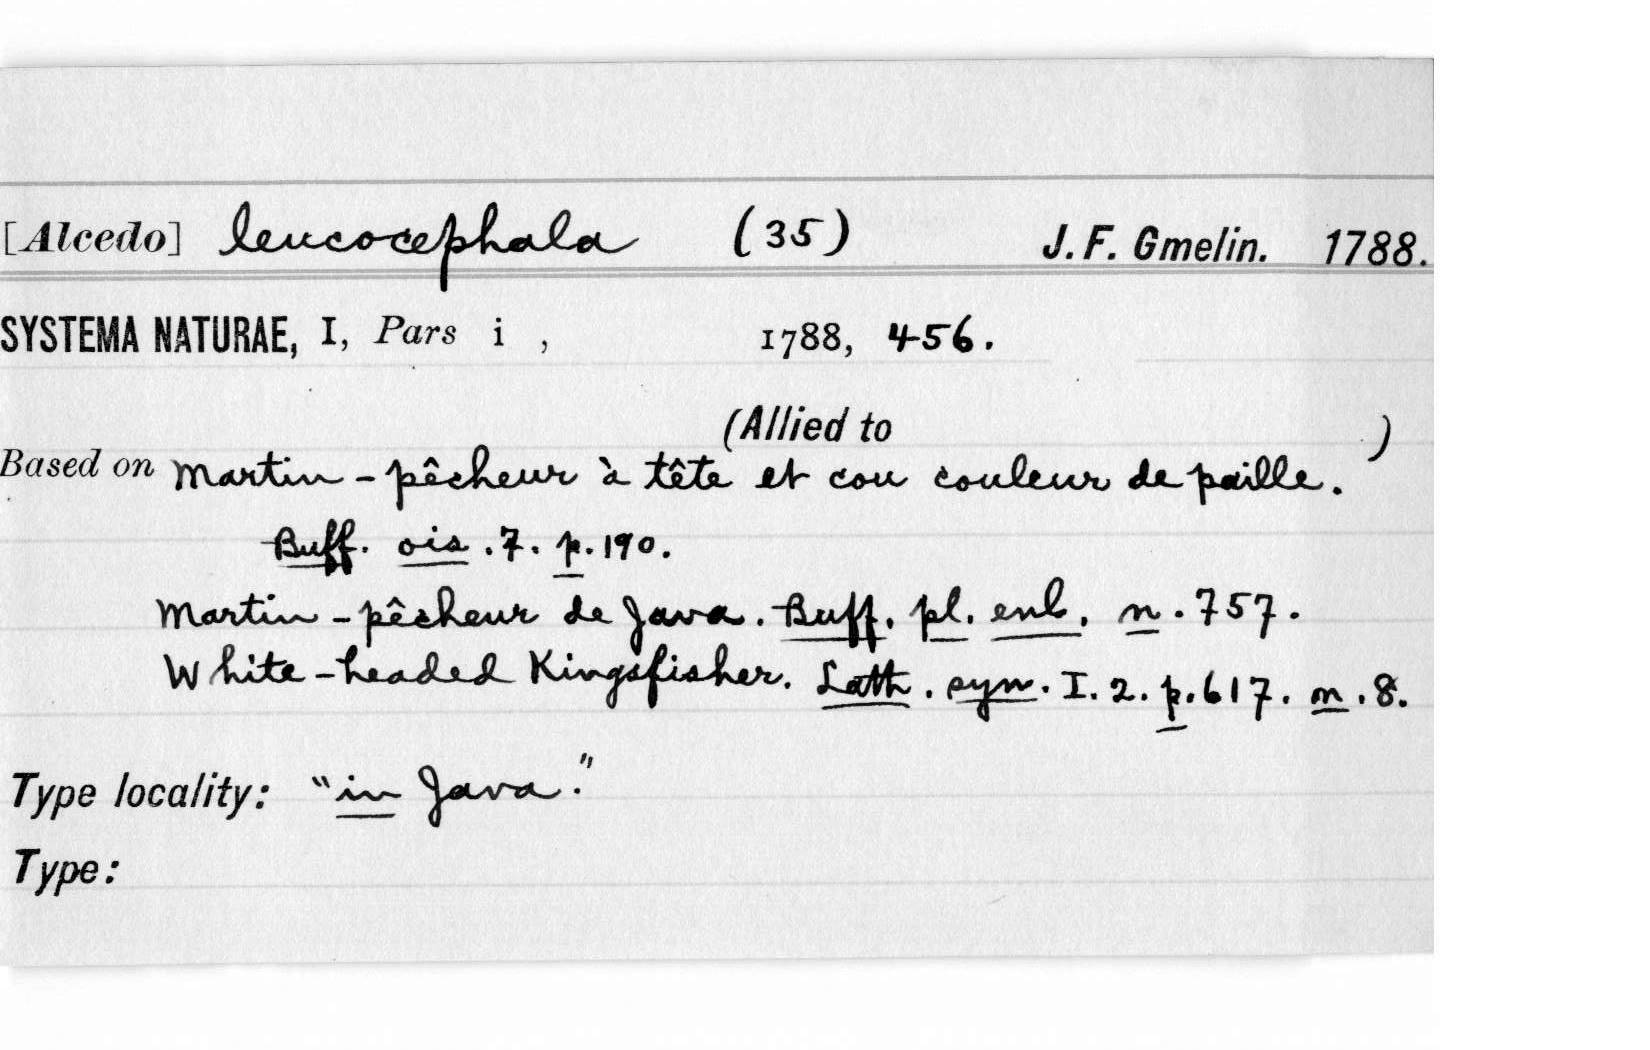 [Alcedo] leucocephala (35) J. F. Gmelin. 1788.
SYSTEMA NATURAE, I, Pars i , 1788, 456.
(Allied to )
Based on Martin-pêcheur à tête et cou couleur de paille.
Buff. ois. 7. p. 190.
Martin-pêcheur de Java. Buff. pl. enl. n. 757.
White-headed Kingsfisher. Lath. syn. I. 2. p. 617. n. 8.
Type locality: "in Java."
Type: